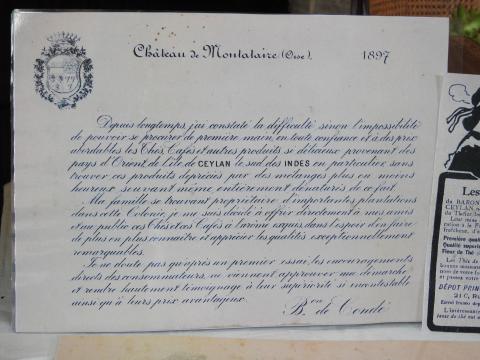 Château de Montataire (Oise), 1897
Depuis longtemps, j'ai constaté la difficulté sinon l'impossibilité
de pouvoir se procurer de première main, en toute confiance et à des prix
abordables les Thés, Cafés et autres produits se débitant provenant des
pays d'Orient de l'île de CEYLAN le sud des INDES en particulier sans
trouver ces produits dépréciés par des mélanges plus ou moins
heureux souvent même entièrement dénaturés de ce fait.
Ma famille se trouvant propriétaire d'importantes plantations
dans cette Colonie, je me suis décidé à offrir directement à mes amis
et au public ces Thés et ces Cafés à l'arôme exquis dans l'espoir d'en faire
de plus en plus connaître et apprécier les qualités exceptionnellement
remarquables.
Je ne doute pas qu'après un premier essai les encouragements
directs des consommateurs, ne viennent approuver ma démarche
et rendre hautement témoignage à leur supériorité si incontestable
ainsi qu'à leurs prix avantageux.
B.on de Condé
Les
du BARON
CEYLAN
Première qua
Qualité supérie
Fleur de Thé
DÉPOT PRIN
21 C, R